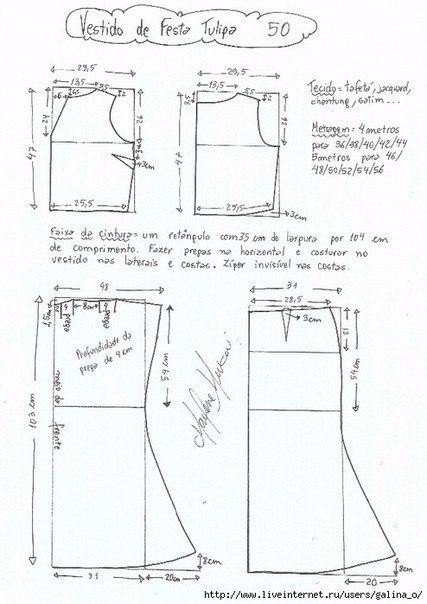 Vestido de Festa Tulipa 50
29,5
13,5
24
47
29
3cm
25,5
29,5
13,5
47
29
25,5
3cm
Tecido= tafetá, jacquard,
chantung, satim...
Metragem= 4 metros
para 36/38/40/42/44
5 metros para 46/
48/50/52/54/56
Faixa da cintura= um retângulo com 35 cm de largura por 104 cm
de comprimento. Fazer pregas na horizontal e costurar no
vestido nas laterais e costas. Zíper invisível nas costas.
48
4 8cm 4
prega prega
Profundidade da
prega de 4 cm
meio da frente
103 cm
54 cm
8cm
31 20cm
31
28,5
3cm
12
54cm
8cm
20
http://www.liveinternet.ru/users/galina_o/